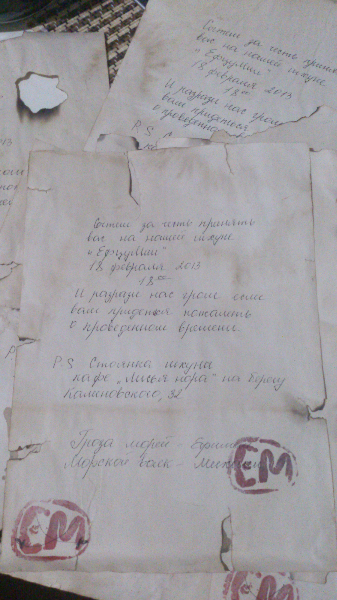 Сочтем за честь принять
вас на нашей шхуне
"Ефзумии"
18 февраля 2013
18 00
И разрази нас гром если
вам придется пожалеть
о проведенном времени.
P.S Стоянка шхуны
кафе "Лисья нора" на берегу
Каменовского, 32
Гроза морей -
Морской волк -
СМ
СМ
Сочтем за честь приня
вас на нашей шхуне
18 февраля 2013
18 00
И разрази нас гром
вам придется
о проведенно
P.S
СМ